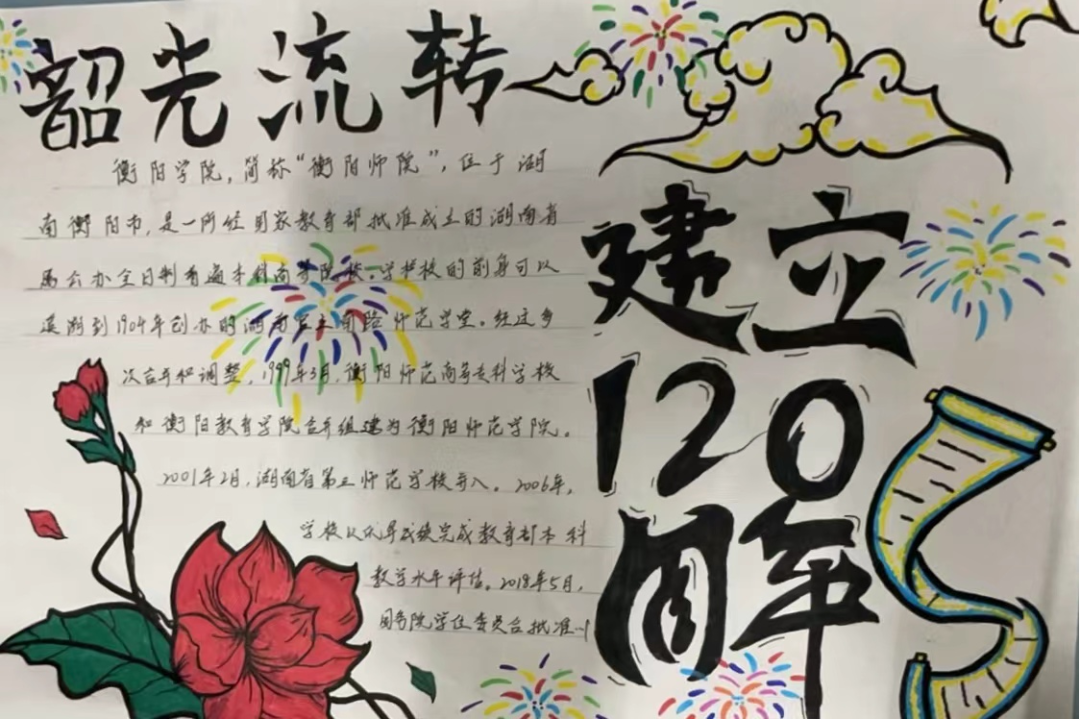 韶光流转
衡阳学院，简称“衡阳师院”，位于湖
南衡阳市，是一所经国家教育部批准成立的湖南省
属公办全日制普通本科高等院校。学校的前身可以
追溯到1904年创办的湖南官立南路师范学堂。经过多
次合并和调整，1999年3月，衡阳师范高等专科学校
和衡阳教育学院合并组建为衡阳师范学院。
2001年2月，湖南省第三师范学校并入。2006年，
学校以优异成绩完成教育部本科
教学水平评估。2018年5月，
国务院学位委员会批准
建立
120
周年